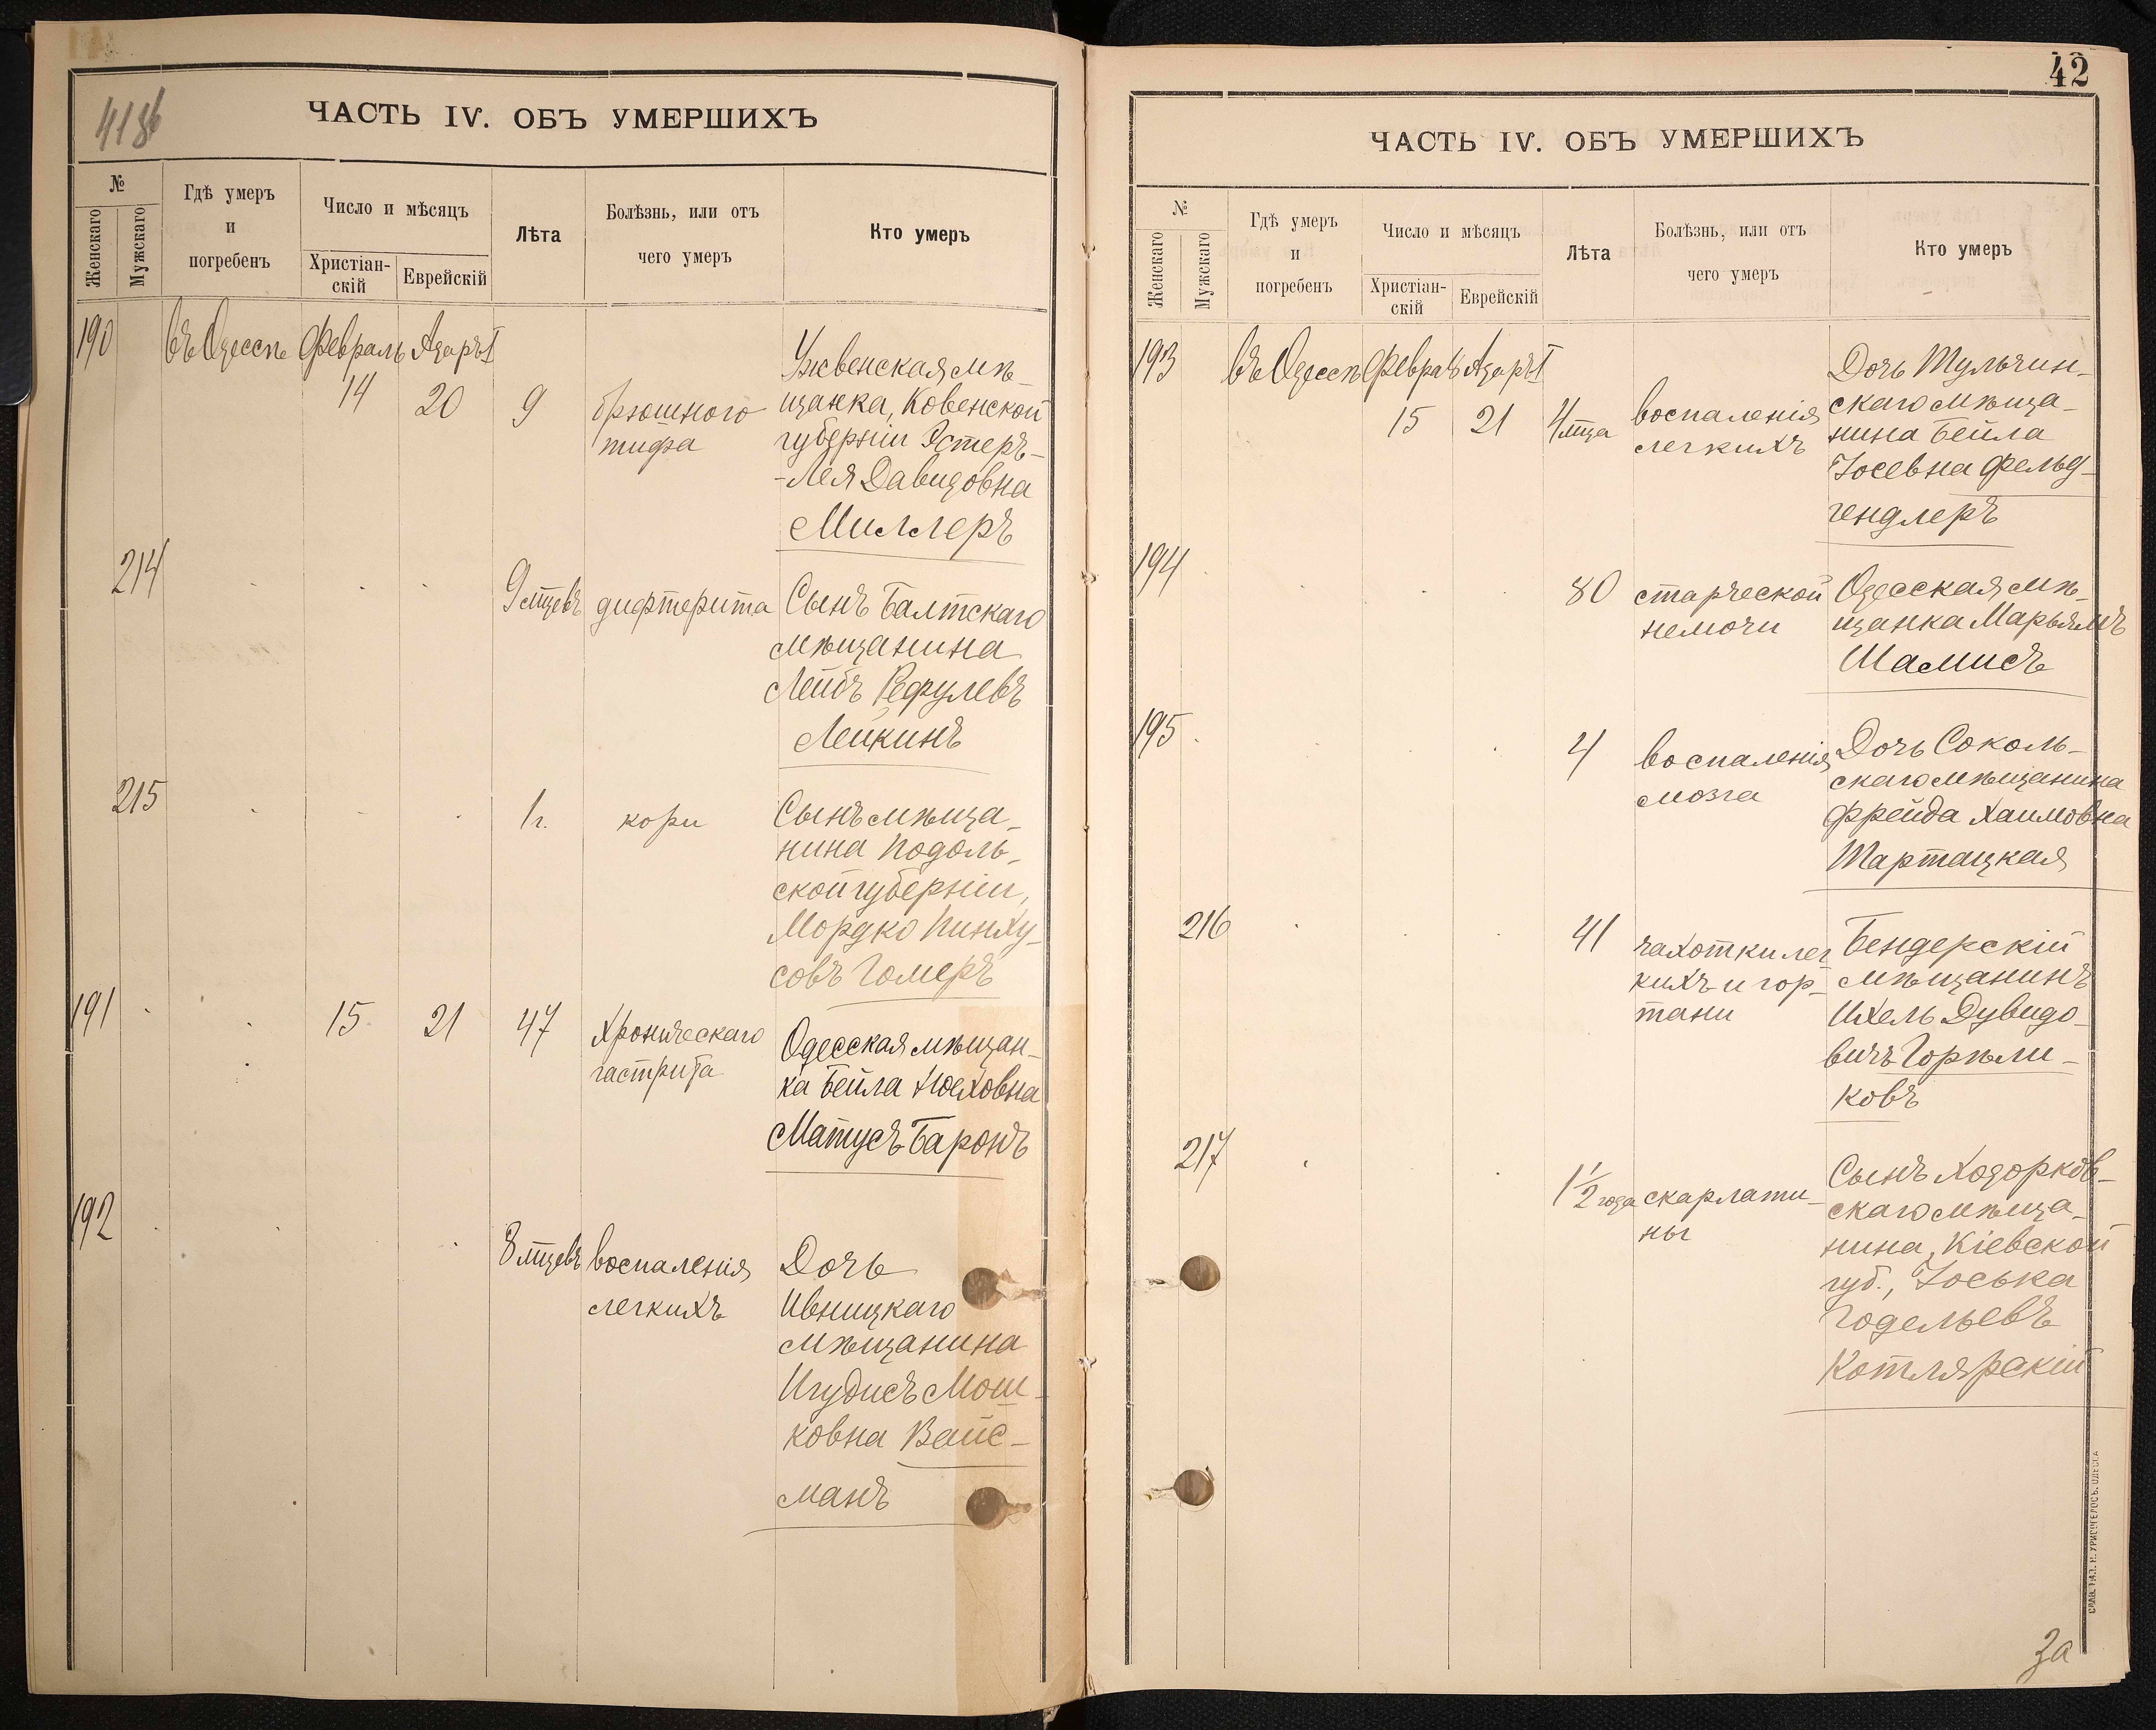 41об
ЧАСТЬ IV. ОБЪ УМЕРШИХЪ
№
Женскаго
Мужскаго
Гдѣ умеръ
и
погребенъ
Число и мѣсяцъ
Христіан-
скій
Еврейскій
Лѣта
Болѣзнь, или отъ
чего умеръ
Кто умеръ
190
въ Одессѣ
Февраль
14
Адаръ I
20
9
брюшного
тифа
Ужвенская мѣ-
щанка, Ковенской
губерніи Эстеръ-
-Лея Давидовна
Миллеръ
214
9 мцевъ
дифтерита
Сынъ Балтскаго
мѣщанина
Лейбъ Рефулевъ
Лейкинъ
215
1 г.
кори
Сынъ мѣща-
нина Подоль-
ской губерніи,
Мордко Пинху-
совъ Гомеръ
191
15
21
47
хроническаго
гастрита
Одесская мѣщан-
ка Бейла
Матусъ-Баронъ
192
8 мцевъ
воспаленія
легкихъ
Дочь
Ивницкаго
мѣщанина
Игудисъ Мош-
ковна Вайс-
манъ
42
ЧАСТЬ IV. ОБЪ УМЕРШИХЪ
№
Женскаго
Мужскаго
Гдѣ умеръ
и
погребенъ
Число и мѣсяцъ
Христіан-
скій
Еврейскій
Лѣта
Болѣзнь, или отъ
чего умеръ
Кто умеръ
193
въ Одессѣ
Февраль
15
Адаръ I
21
4 мца
воспаленія
легкихъ
Дочь Тульчин-
скаго мѣща-
нина Бейла
Іосевна Фельд-
гендлеръ
194
80
старческой
немочи
Одесская мѣ-
щанка Марьямъ
Шамисъ
195
4
воспаленія
мозга
Дочь Соколь-
скаго мѣщанина
Фрейда Хаимовна
Тартацкая
216
41
чахотки лег
кихъ и гор-
тани
Бендерскій
мѣщанинъ
Ихель Дувидо-
вичъ Горѣли-
ковъ
217
1 1/2 года
скарлати-
ны
Сынъ Ходорков-
скаго мѣща-
нина, Кіевской
губ., Іоська
Годельевъ
Котлярскій
за